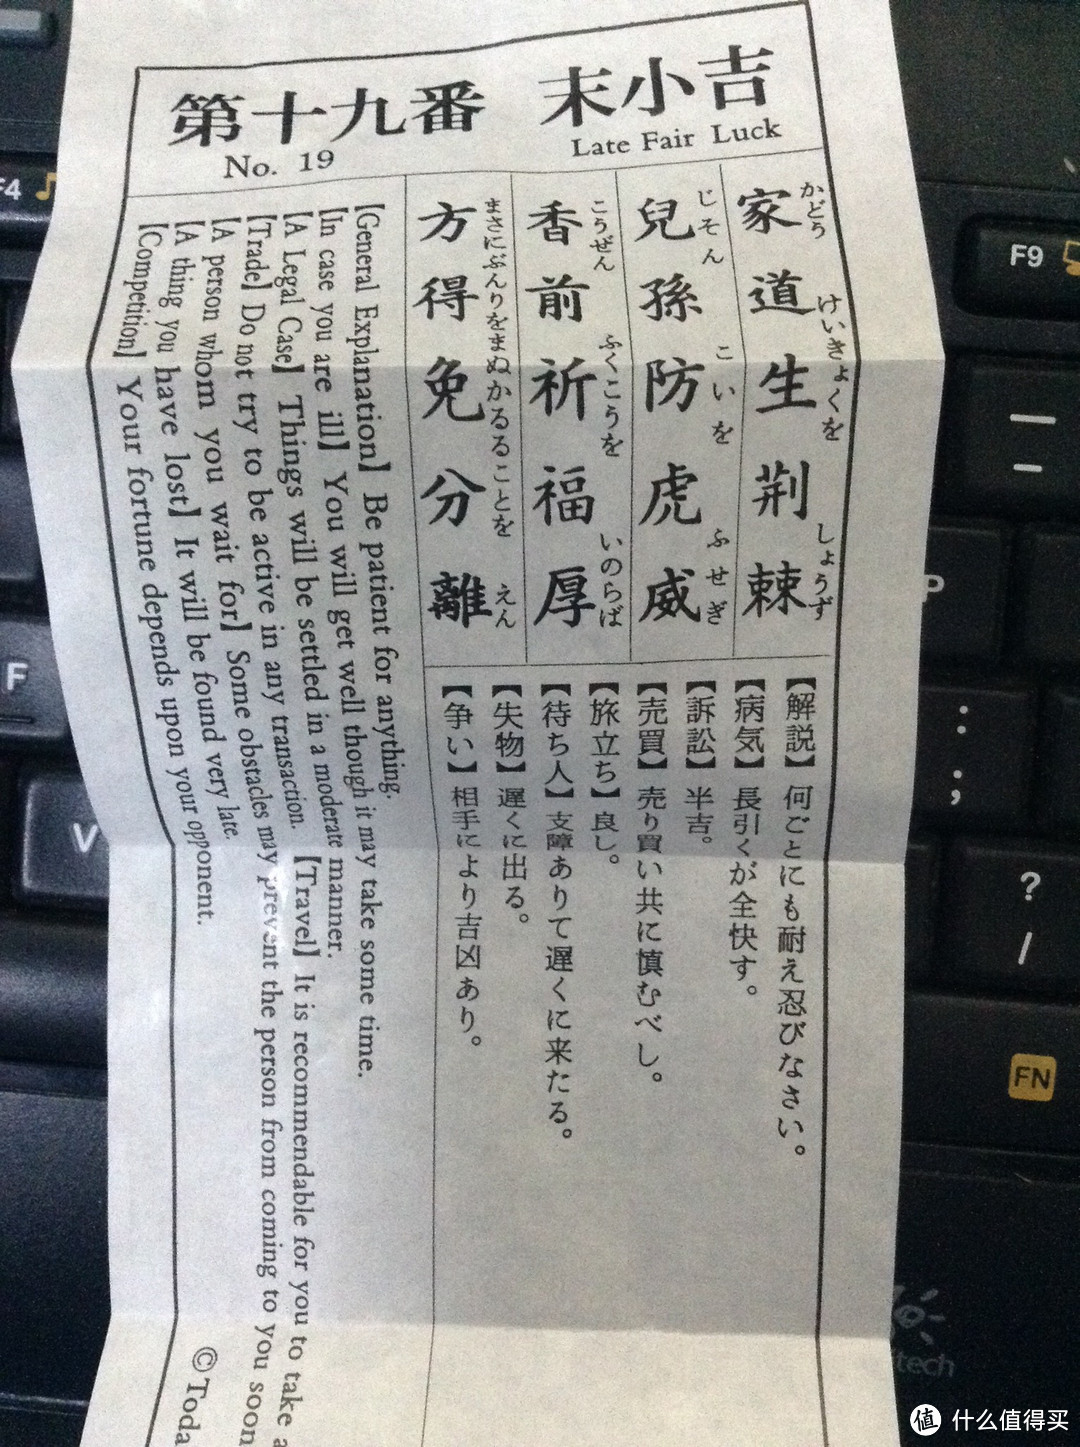 第十九番 末小吉
No. 19 Late Fair Luck
家道生荊棘
かどう けいきょくを しょうず
兒孫防虎威
じそん こいを ふせぎ
香前祈福厚
こうぜん ふくこうを いのらば
方得免分離
まさにぶんりをまぬかるることを えん
【解説】何ごとにも耐え忍びなさい。
【病気】長引くが全快す。
【訴訟】半吉。
【売買】売り買い共に慎むべし。
【旅立ち】良し。
【待ち人】支障ありて遅くに来たる。
【失物】遅くに出る。
【争い】相手により吉凶あり。
【General Explanation】 Be patient for anything.
【In case you are ill】 You will get well though it may take some time.
【A Legal Case】 Things will be settled in a moderate manner.
【Trade】 Do not try to be active in any transaction. 【Travel】 It is recommendable for you to take a
【A person whom you wait for】 Some obstacles may prevent the person from coming to you soon
【A thing you have lost】 It will be found very late.
【Competition】 Your fortune depends upon your opponent.
©Toda
F4
F9
F
V
P
–
-
:
;
?
/
FN
tech
值 什么值得买